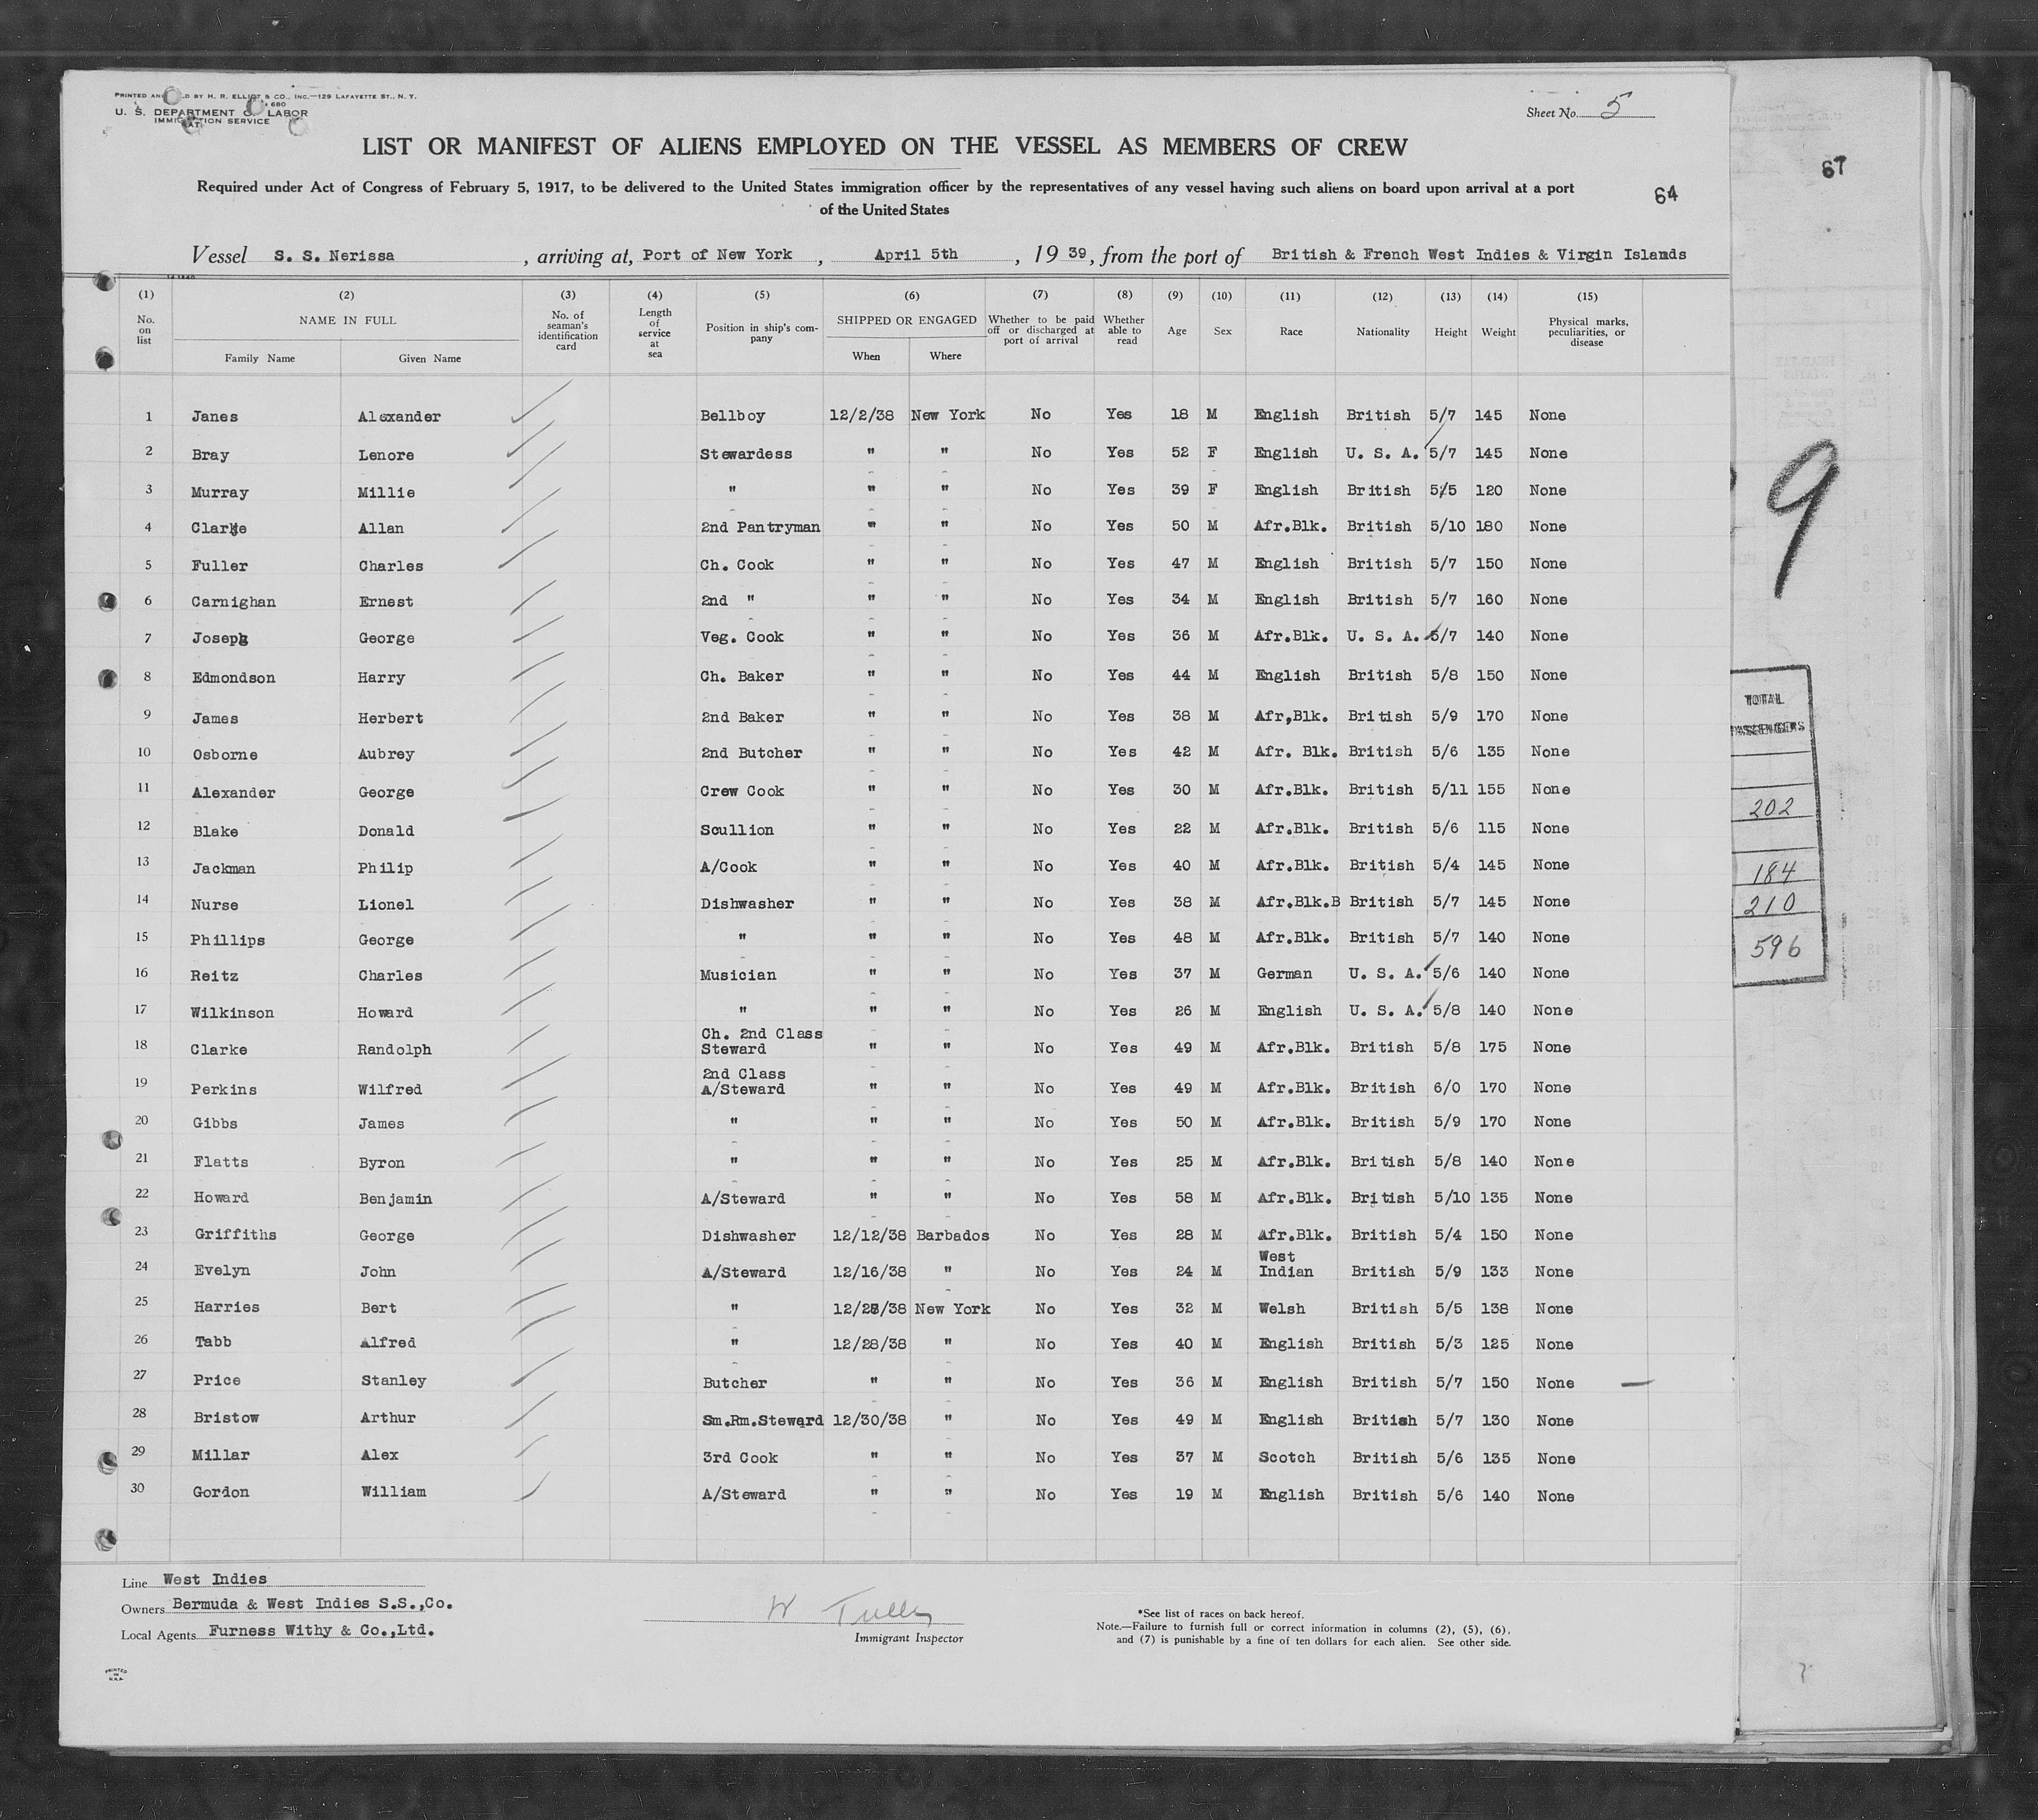 PRINTED AND SOLD BY H. R. ELLIOT & CO., INC.—129 LAFAYETTE ST., N. Y.
680
U. S. DEPARTMENT OF LABOR
IMMIGRATION SERVICE
Sheet No. 5
LIST OR MANIFEST OF ALIENS EMPLOYED ON THE VESSEL AS MEMBERS OF CREW
67
Required under Act of Congress of February 5, 1917, to be delivered to the United States immigration officer by the representatives of any vessel having such aliens on board upon arrival at a port
of the United States
64
Vessel S. S. Nerissa, arriving at, Port of New York, April 5th, 1939, from the port of British & French West Indies & Virgin Islands
(1) (2) (3) (4) (5) (6) (7) (8) (9) (10) (11) (12) (13) (14) (15)
No. on list NAME IN FULL Family Name Given Name No. of seaman's identification card Length of service at sea Position in ship's company SHIPPED OR ENGAGED When Where Whether to be paid off or discharged at port of arrival Whether able to read Age Sex Race Nationality Height Weight Physical marks, peculiarities, or disease
1 Janes Alexander Bellboy 12/2/38 New York No Yes 18 M English British 5/7 145 None
2 Bray Lenore Stewardess " " No Yes 52 F English U. S. A. 5/7 145 None
3 Murray Millie " " " No Yes 39 F English British 5/5 120 None
4 Clarke Allan 2nd Pantryman " " No Yes 50 M Afr.Blk. British 5/10 180 None
5 Fuller Charles Ch. Cook " " No Yes 47 M English British 5/7 150 None
6 Carnighan Ernest 2nd " " " No Yes 34 M English British 5/7 160 None
7 Joseph George Veg. Cook " " No Yes 36 M Afr.Blk. U. S. A. 5/7 140 None
8 Edmondson Harry Ch. Baker " " No Yes 44 M English British 5/8 150 None
9 James Herbert 2nd Baker " " No Yes 38 M Afr,Blk. British 5/9 170 None
10 Osborne Aubrey 2nd Butcher " " No Yes 42 M Afr. Blk. British 5/6 135 None
11 Alexander George Crew Cook " " No Yes 30 M Afr.Blk. British 5/11 155 None
12 Blake Donald Scullion " " No Yes 22 M Afr.Blk. British 5/6 115 None
13 Jackman Philip A/Cook " " No Yes 40 M Afr.Blk. British 5/4 145 None
14 Nurse Lionel Dishwasher " " No Yes 38 M Afr.Blk.B British 5/7 145 None
15 Phillips George " " " No Yes 48 M Afr.Blk. British 5/7 140 None
16 Reitz Charles Musician " " No Yes 37 M German U. S. A. 5/6 140 None
17 Wilkinson Howard " " " No Yes 26 M English U. S. A. 5/8 140 None
18 Clarke Randolph Ch. 2nd Class Steward " " No Yes 49 M Afr.Blk. British 5/8 175 None
19 Perkins Wilfred 2nd Class A/Steward " " No Yes 49 M Afr.Blk. British 6/0 170 None
20 Gibbs James " " " No Yes 50 M Afr.Blk. British 5/9 170 None
21 Flatts Byron " " " No Yes 25 M Afr.Blk. British 5/8 140 None
22 Howard Benjamin A/Steward " " No Yes 58 M Afr.Blk. British 5/10 135 None
23 Griffiths George Dishwasher 12/12/38 Barbados No Yes 28 M Afr.Blk. British 5/4 150 None
24 Evelyn John A/Steward 12/16/38 " No Yes 24 M West Indian British 5/9 133 None
25 Harries Bert " 12/28/38 New York No Yes 32 M Welsh British 5/5 138 None
26 Tabb Alfred " 12/28/38 " No Yes 40 M English British 5/3 125 None
27 Price Stanley Butcher " " No Yes 36 M English British 5/7 150 None
28 Bristow Arthur Sm.Rm.Steward 12/30/38 " No Yes 49 M English British 5/7 130 None
29 Millar Alex 3rd Cook " " No Yes 37 M Scotch British 5/6 135 None
30 Gordon William A/Steward " " No Yes 19 M English British 5/6 140 None
9
TOTAL
PASSENGERS
202
184
210
596
Line West Indies
Owners Bermuda & West Indies S.S.,Co.
Local Agents Furness Withy & Co.,Ltd.
W Tully
Immigrant Inspector
*See list of races on back hereof.
Note.—Failure to furnish full or correct information in columns (2), (5), (6),
and (7) is punishable by a fine of ten dollars for each alien. See other side.
PRINTED
IN
U.S.A.